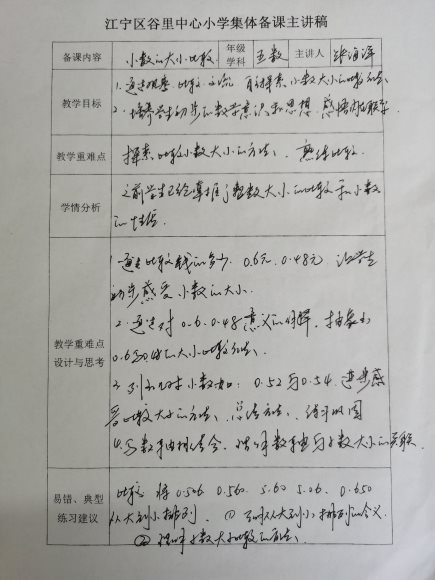 江宁区谷里中心小学集体备课主讲稿
备课内容 小数的大小比较 年级学科 五数 主讲人 张海洋
教学目标
1.通过观察、比较、交流、自主探索小数大小的比较方法
2.培养学生初步的数学意识和思想，感悟
教学重难点 探索比较小数大小的方法、熟练比较
学情分析
之前学生已经掌握了整数大小的比较和小数
的性质
教学重难点
设计与思考
1.通过比较钱的多少，0.6元，0.48元，让学生
初步感受小数的大小.
2.通过对0.6 0.48意义的理解，抽象出
0.6 大小比较方法、
3.列出几对小数如：0.52与0.54，进一步感
受比较大小的方法、总结方法、练习巩固
4.与数轴相结合，体会数轴与小数大小的关联
易错、典型
练习建议
比较 将0.506 0.560 5.60 5.06 0.650
从大到小排列. ① 从大到小排列的含义
② 小数大小比较的方法、